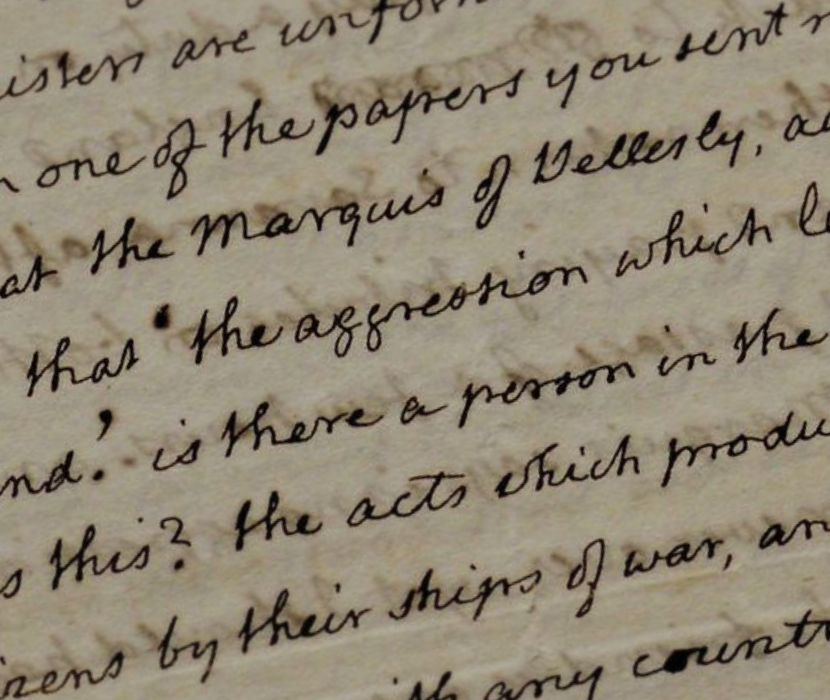 isters are unfor
one of the papers you sent
at the Marquis of Wellesly, a
that ' the aggression which l
nd.' is there a person in the
s this? the acts which produ
izens by their ships of war, an
th any countr